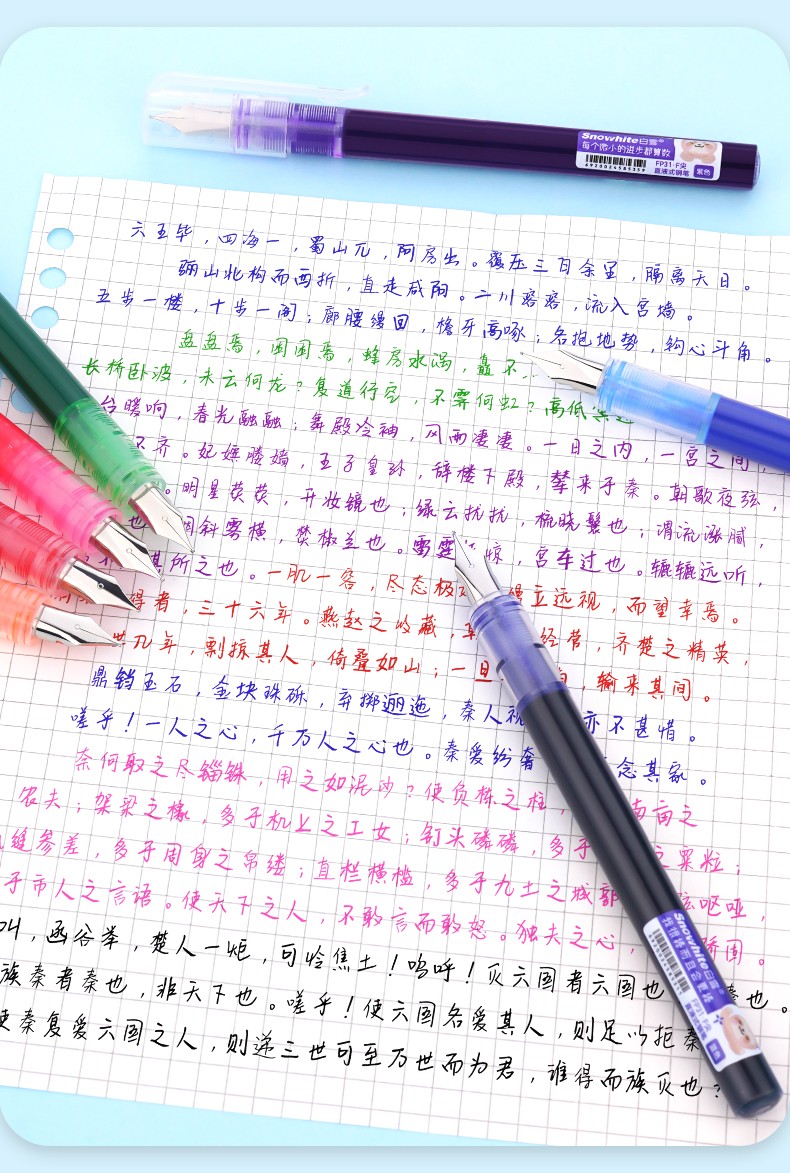 Snowhite白雪®
每个微小的进步都算数
FP31·F尖
直液式钢笔
紫色
6920024585359
六王毕，四海一，蜀山兀，阿房出。覆压三百余里，隔离天日。
骊山北构而西折，直走咸阳。二川溶溶，流入宫墙。
五步一楼，十步一阁；廊腰缦回，檐牙高啄；各抱地势，钩心斗角。
盘盘焉，囷囷焉，蜂房水涡，矗不
长桥卧波，未云何龙？复道行空，不霁何虹？高低
台暖响，春光融融；舞殿冷袖，风雨凄凄。一日之内，一宫之间，
不齐。妃嫔媵嫱，王子皇孙，辞楼下殿，辇来于秦。朝歌夜弦，
明星荧荧，开妆镜也；绿云扰扰，梳晓鬟也；渭流涨腻，
也；烟斜雾横，焚椒兰也。雷霆 惊，宫车过也。辘辘远听，
其所之也。一肌一容，尽态极 立远视，而望幸焉。
得者，三十六年。燕赵之收藏， 经营，齐楚之精英，
世几年，剽掠其人，倚叠如山；一旦 输来其间。
鼎铛玉石，金块珠砾，弃掷逦迤，秦人视 亦不甚惜。
嗟乎！一人之心，千万人之心也。秦爱纷奢 念其家。
奈何取之尽锱铢，用之如泥沙？使负栋之柱， 南亩之
农夫；架梁之椽，多于机上之工女；钉头磷磷，多于 之粟粒；
缝参差，多于周身之帛缕；直栏横槛，多于九土之城郭 呕哑，
于市人之言语。使天下之人，不敢言而敢怒。独夫之心， 骄固。
叫，函谷举，楚人一炬，可怜焦土！呜呼！灭六国者六国也 秦也。
族秦者秦也，非天下也。嗟乎！使六国各爱其人，则足以拒秦
使秦复爱六国之人，则递三世可至万世而为君，谁得而族灭也？
Snowhite白雪®